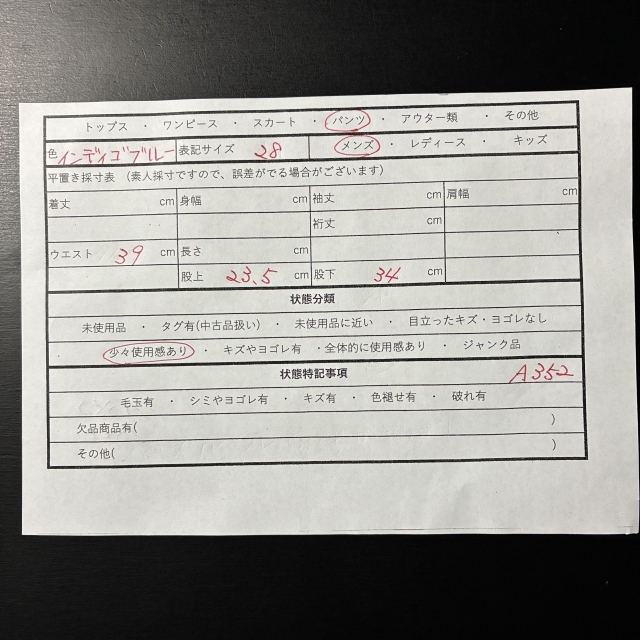 トップス ・ ワンピース ・ スカート ・ パンツ ・ アウター類 ・ その他
色 インディゴブルー 表記サイズ 28 メンズ ・ レディース ・ キッズ
平置き採寸表 (素人採寸ですので、誤差がでる場合がございます)
着丈 cm 身幅 cm 袖丈 cm 肩幅 cm
裄丈 cm
ウエスト 39 cm 長さ cm
股上 23.5 cm 股下 34 cm
状態分類
未使用品 ・ タグ有(中古品扱い) ・ 未使用品に近い ・ 目立ったキズ・ヨゴレなし
・ 少々使用感あり ・ キズやヨゴレ有 ・全体的に使用感あり ・ ジャンク品
状態特記事項 A352
毛玉有 ・ シミやヨゴレ有 ・ キズ有 ・ 色褪せ有 ・ 破れ有
欠品商品有( )
その他( )